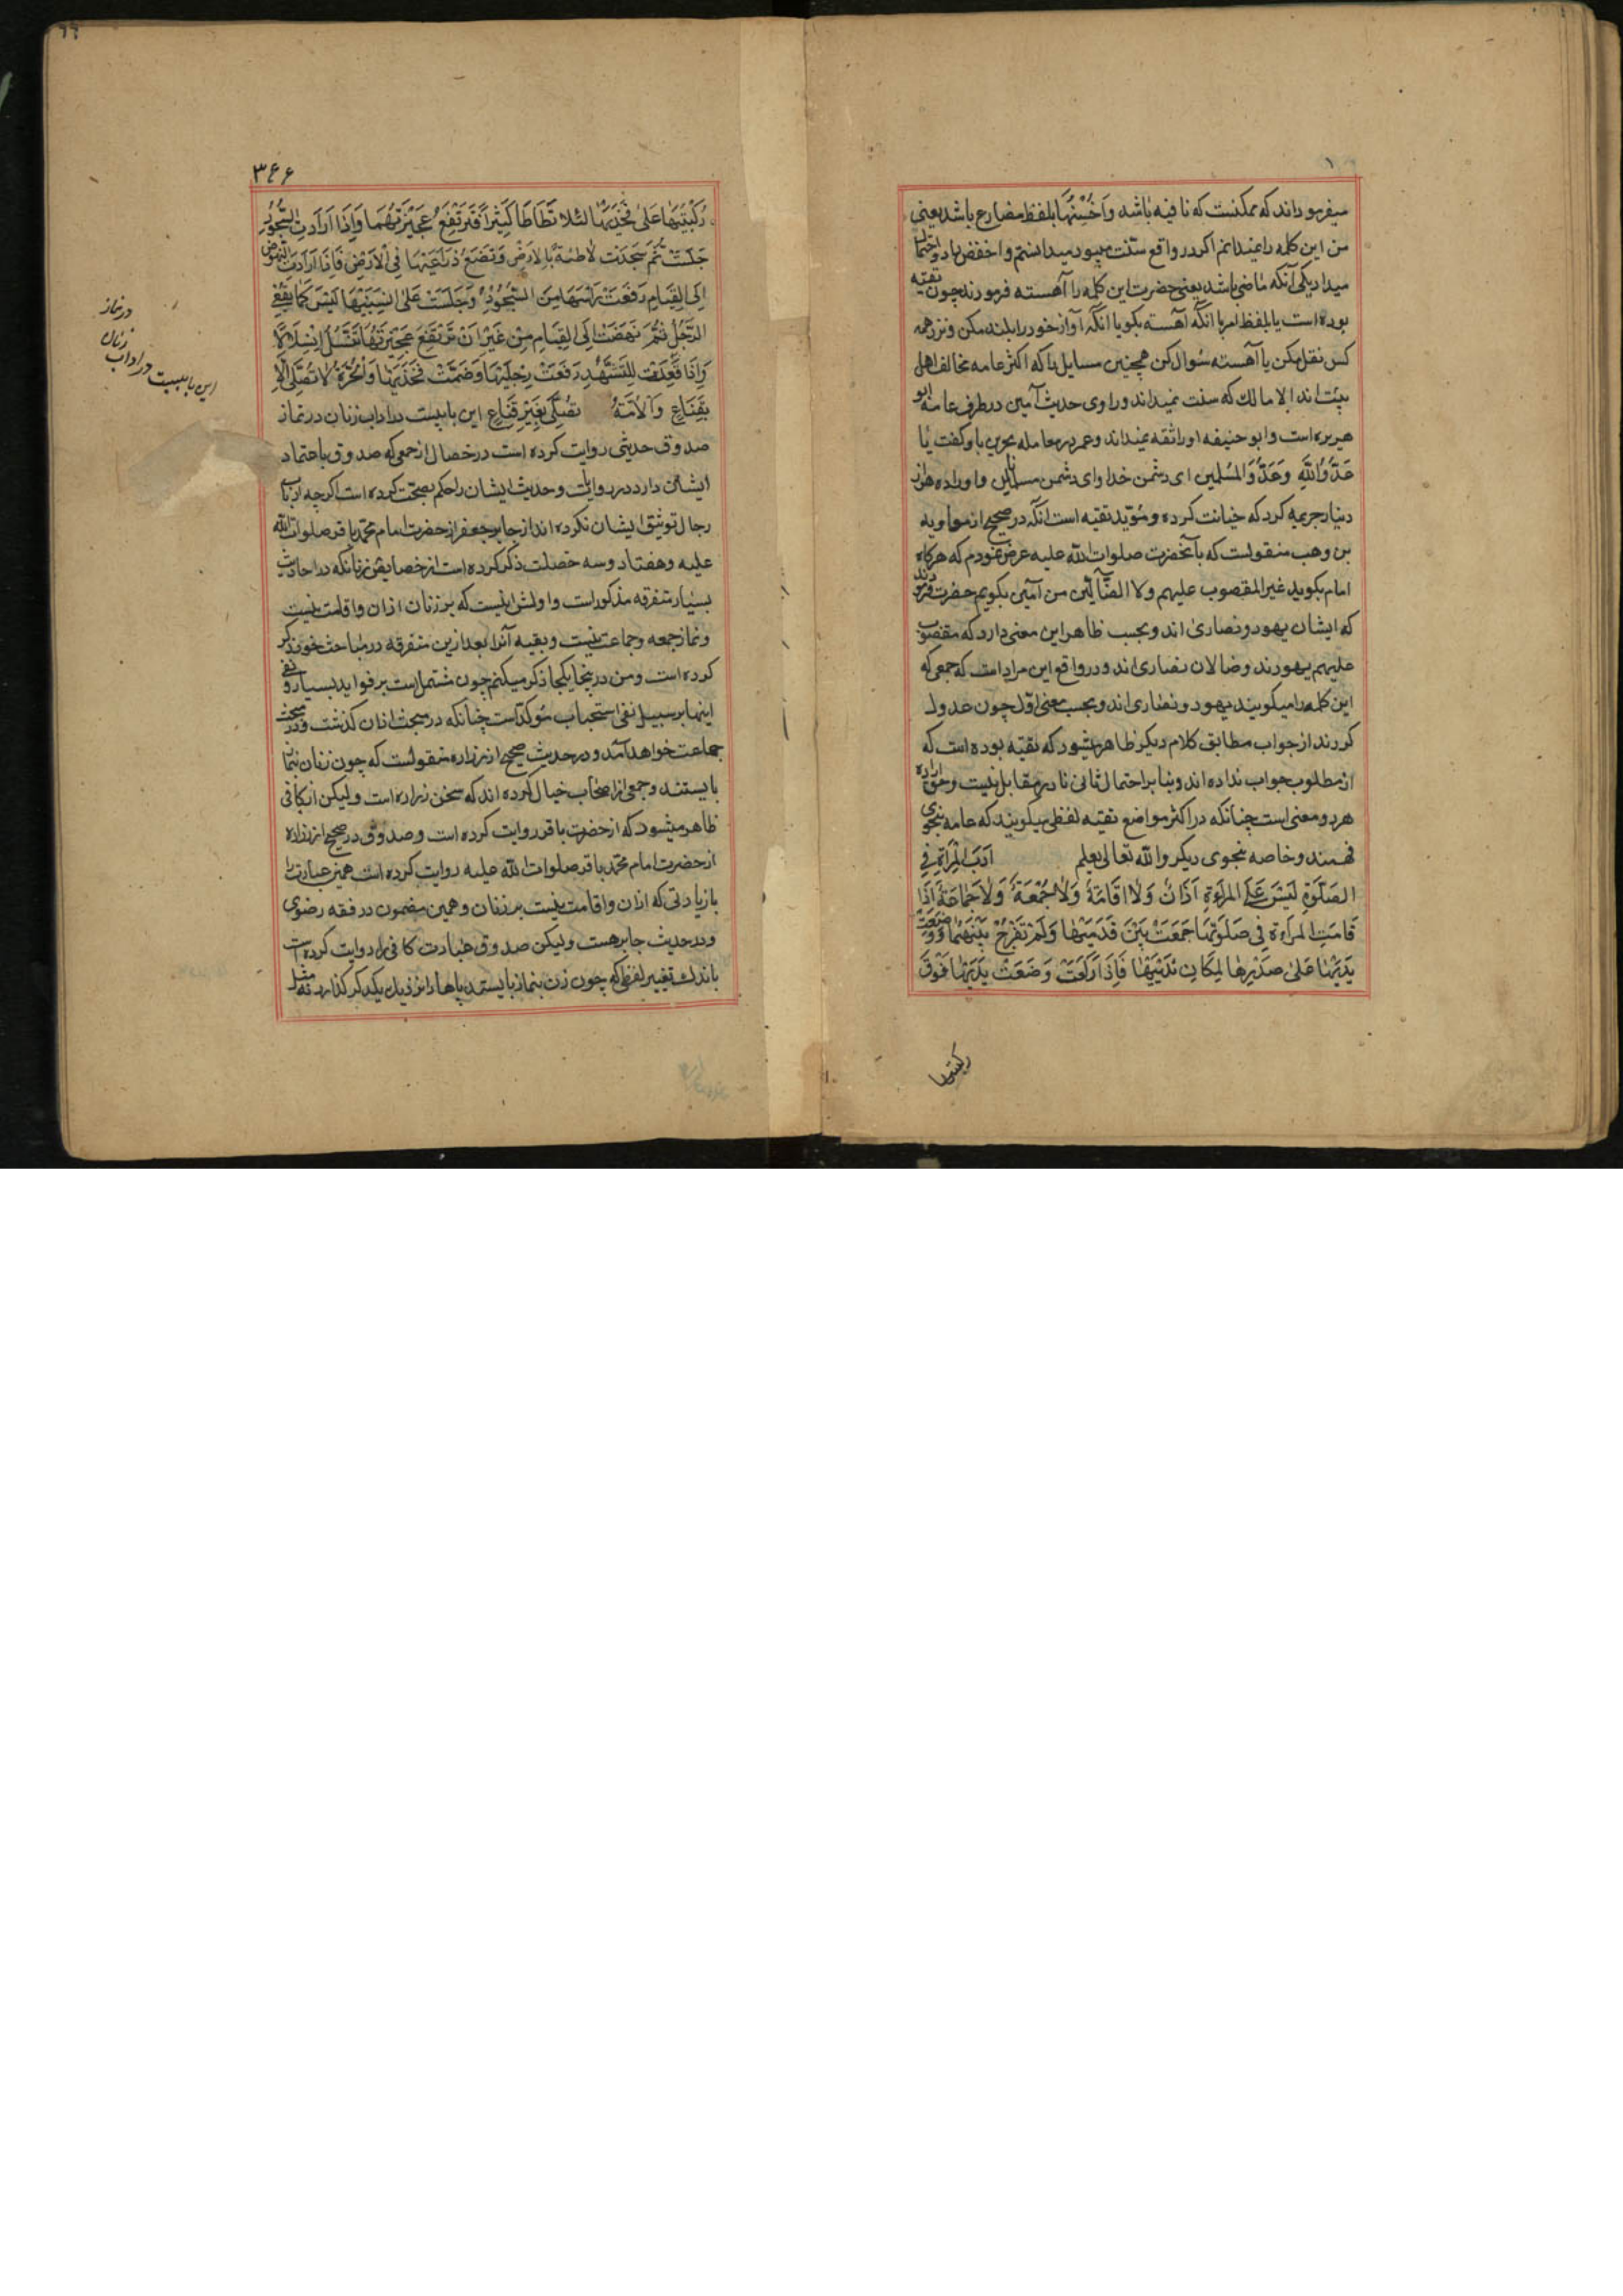 میفرموده اند که ممکنست که نافیه باشد و اَحْسَنَها بلفظ مضارع باشد یعنی
من این کلمه را نمیدانم اکر در واقع سنّت میبود میدانستم و اخفض بها دو احتمال
میدارد یکی آنکه ماضی باشد یعنی حضرت این کلمه را آهسته فرمودند چون تقیه
بوده است یا بلفظ امر یا انکه آهسته بکو یا انکه آواز خود را بلند مکن و نزد همه
کس نقل مکن یا آهسته سُوال کن همچنین مسایل را که اکثر عامه مخالف اهل
بیت اند الا مالك که سنت نمیداند و راوی حدیث آمین در طرف عامه ابو
هریره است و ابو حنیفه او را ثقه نمیداند و عمر در معامله بحرین باو کفت یا
عَدُوَّ اللّهِ وَ عَدُوَّ المُسْلِمین ای دشمن خدا و ای دشمن مسلمانان و او را ده هزار
دینار جریمه کرد که خیانت کرده و مُویّد تقیه است انکه در صحیح از معاویه
بن وهب منقولست که بآنحضرت صلوات اللّه علیه عرض نمودم که هرکاه
امام بکوید غیر المغضوب علیهم ولا الضّآلّین من آمین بکویم حضرت فرمودند
که ایشان یهود و نصاری اند و بحسب ظاهر این معنی دارد که مغضوب
علیهم یهودند و ضالان نصاری اند و در واقع این مراد است که جمعی که
این کلمه را میکویند یهود و نصاری اند و بحسب معنی اوّل چون عدول
کردند از جواب مطابق کلام دیکر ظاهر میشود که تقیّه بوده است که
از مطلوب جواب نداده اند و بنا بر احتمال ثانی نادر مقابل نیست و حق اراده
هر دو معنی است چنانکه در اکثر مواضع تقیه لفظی میکویند که عامه بنحوی
فهمند و خاصه بنحوی دیکر و اللّه تعالی یعلم اَدَبُ المَرْأَةِ فِی
الصَّلٰوةِ لَیْسَ عَلَی المَرْأَةِ اَذَانٌ وَلٰا اِقَامَةٌ وَلٰا جُمُعَةٌ وَلٰا جَمٰاعَةٌ اِذَا
قَامَتِ المَرْأَةُ فِی صَلٰوتِهَا جَمَعَتْ بَیْنَ قَدَمَیْهٰا وَلَمْ تَفَرِّجْ بَیْنَهُمٰا وَ وَضَعَتْ
یَدَیْهٰا عَلیٰ صَدْرِهٰا لِمَکَانِ ثَدْیَیْهٰا فَاِذَا رَکَعَتْ وَضَعَتْ یَدَیْهٰا فَوْقَ
رکبتیها
۳۶۶
رُکْبَتَیْهٰا عَلیٰ فَخِذَیْهٰا لِئَلّا تَطَاْطَاَ کَثِیْرًا فَتَرْتَفِعَ عَجِیْزَتُهُمَا وَ اِذَا اَرَادَتِ السُّجُودَ
جَلَسَتْ ثُمَّ سَجَدَتْ لٰاطِئَةً بِالْاَرْضِ وَ تَضَعُ ذِرَاعَیْهٰا فِی الْاَرْضِ فَاِذَا اَرَادَتِ النُّهُوضَ
اِلَی القِیَامِ رَفَعَتْ رَأْسَهَا مِنَ السُّجُوْدِ وَ جَلَسَتْ عَلیٰ اِلْیَتَیْهٰا لَیْسَ کَمَا یُقْعِی
الرَّجُلُ ثُمَّ نَهَضَتْ اِلَی القِیَامِ مِنْ غَیْرِ اَنْ تَرْتَفِعَ عَجِیْزَتُهٰا تَنْسَلُّ اِنْسِلَالًا
وَ اِذَا قَعَدَتْ لِلتَّشَهُّدِ رَفَعَتْ رِجْلَیْهٰا وَ ضَمَّتْ فَخِذَیْهٰا وَ الْحُرَّةُ لٰا تُصَلِّی اِلّٰا
بِقِنَاعٍ وَ الْاَمَةُ تُصَلِّی بِغَیْرِ قِنَاعٍ این بابیست در اداب زنان در نماز
صدوق حدیثی روایت کرده است در خصال از جمعی که صدوق با اعتماد
ایشان دارد در روایات و حدیث ایشان را حکم بصحّت کرده است اکرچه ارباب
رجال توثیق ایشان نکرده اند از جابر جعفی از حضرت امام محمّد باقر صلوات اللّه
علیه و هفتاد و سه خصلت ذکر کرده است از خصایص زنان انکه در احادیث
بسیار متفرقه مذکور است و اولش اینست که بر زنان اذان و اقامت نیست
و نماز جمعه و جماعت نیست و بقیه آنرا بعد ازین متفرقه در مباحث خود ذکر
کرده است و من در اینجا یکجا ذکر میکنم چون مشتمل است بر فواید بسیار و نفی
اینها بر سبیل نفی استحباب مُوکّد است چنانکه در مبحث اذان کذشت و در مبحث
جماعت خواهد آمد و در حدیث صحیح از زراره منقولست که چون زنان بنماز
بایستند و جمعی از اصحاب خیال کرده اند که سخن زراره است ولیکن از کافی
ظاهر میشود که از حضرت باقر روایت کرده است و صدوق در صحیح از زراره
از حضرت امام محمّد باقر صلوات اللّه علیه روایت کرده است همین عبارت را
با زیادتی که اذان و اقامت نیست بر زنان و همین مضمون در فقه رضوی
و در حدیث جابر هست ولیکن صدوق عبارت کافی را روایت کرده است
باندك تغییر لفظی که چون زن بنماز بایستد پاها را نزدیك یکدیکر کذارد نه مثل
این بابیست در اداب
زنان
در نماز